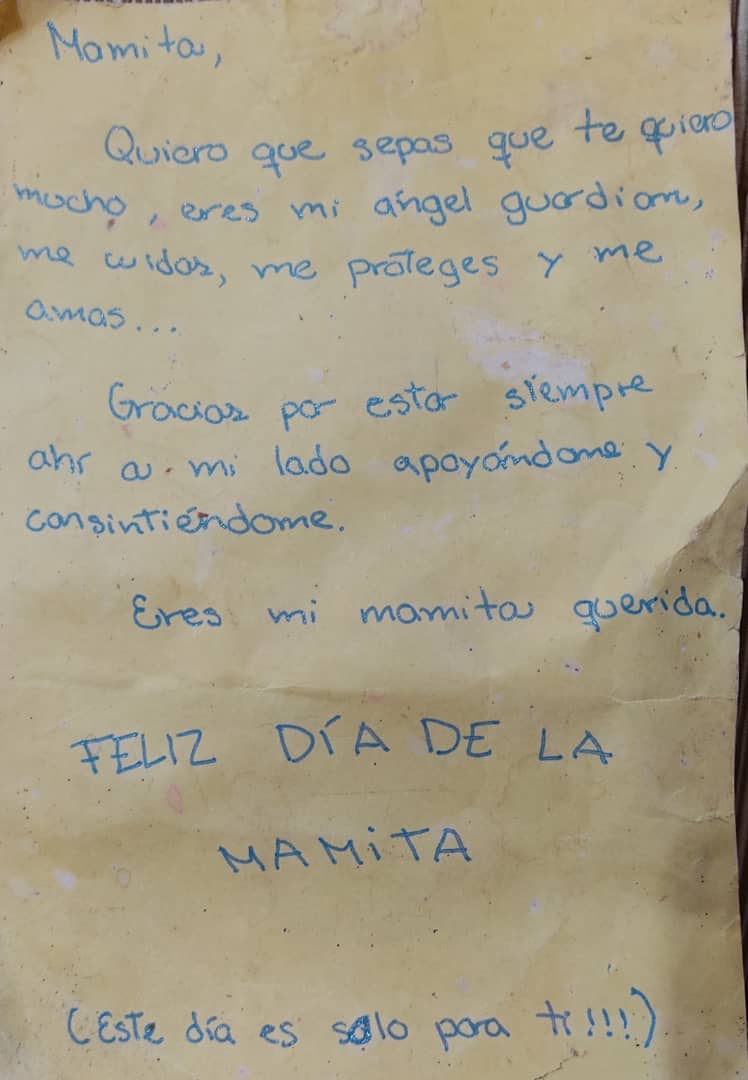 Mamita,
Quiero que sepas que te quiero
mucho, eres mi ángel guardian,
me cuidas, me proteges y me
amas...
Gracias por estar siempre
ahí a mi lado apoyándome y
consintiéndome.
Eres mi mamita querida.
FELIZ DÍA DE LA
MAMiTA
(Este día es solo para ti!!!)